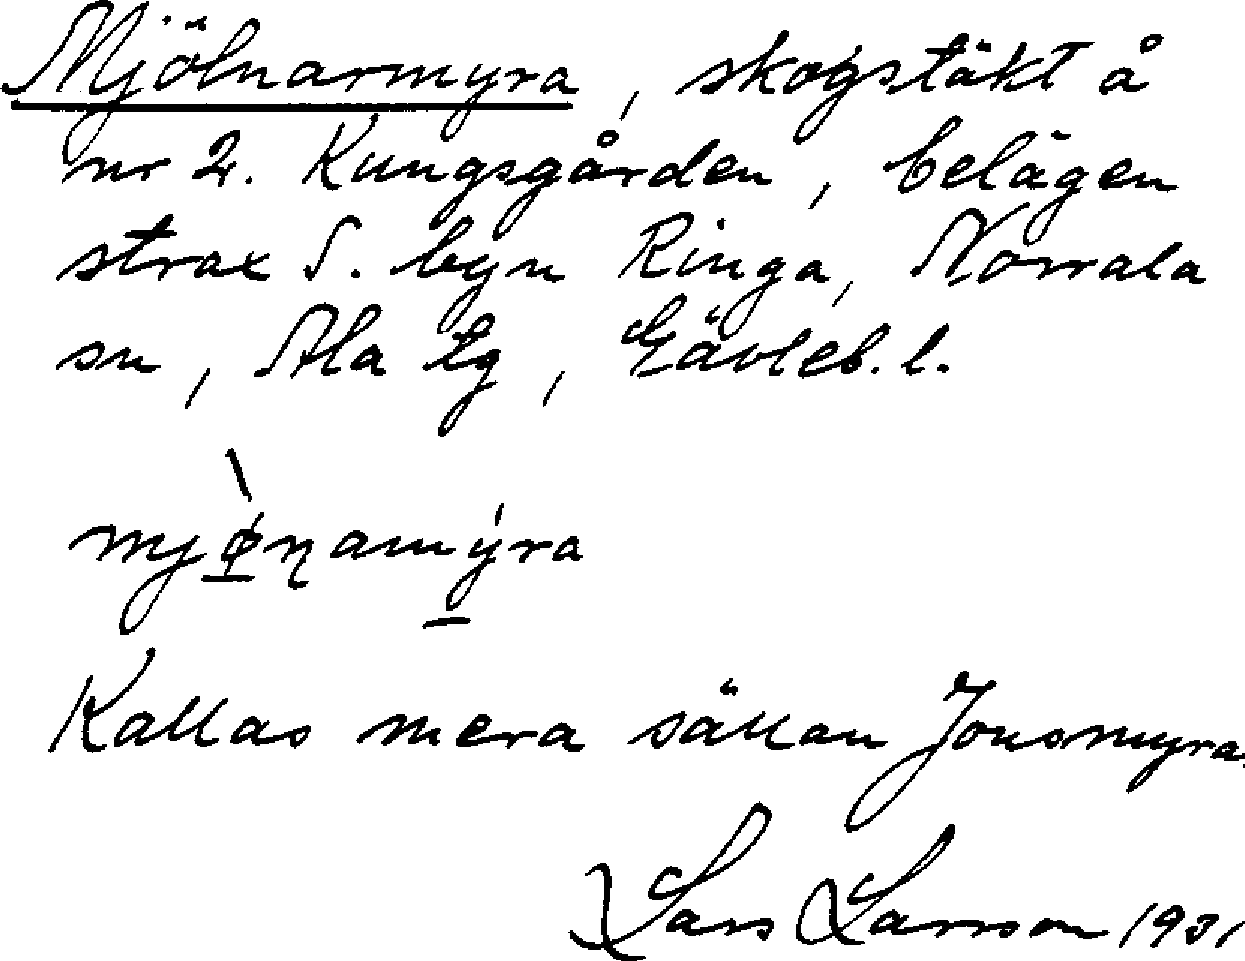 Mjölnarmyra, skogstäkt å
nr 2. Kungsgården, belägen
strax S. byn Ringa, Norrala
sn, Ala tg, Gävleb. l.
mjøn̥amýra
Kallas mera sällan Jonsmyra.
Lars Larsson 1931